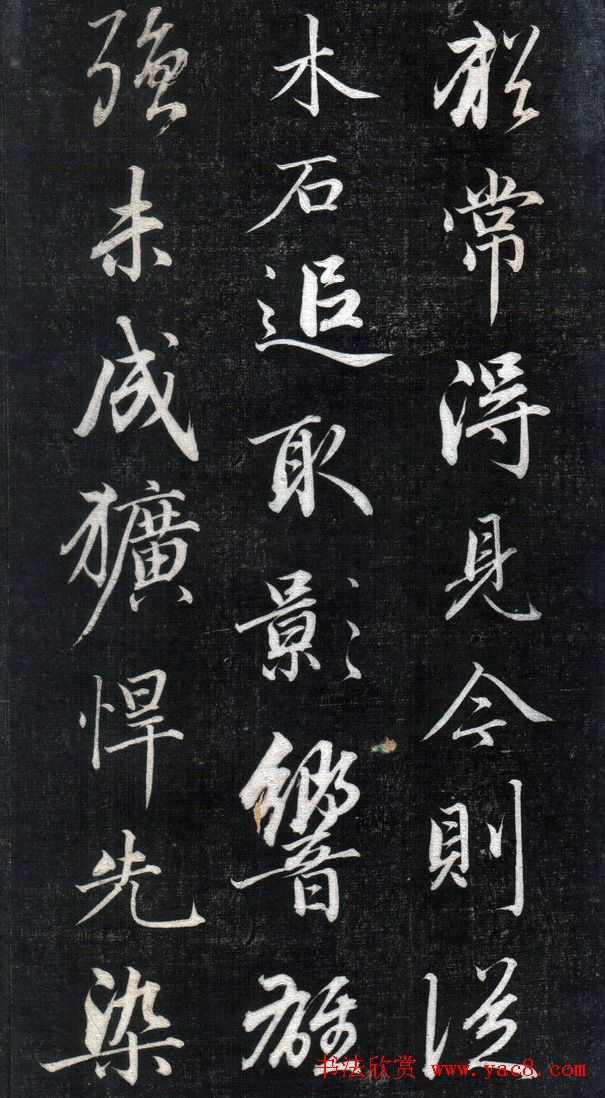 常得見今則從
木石追取影響雖
強未成獷悍先染
书法欣赏 www.yac8.com